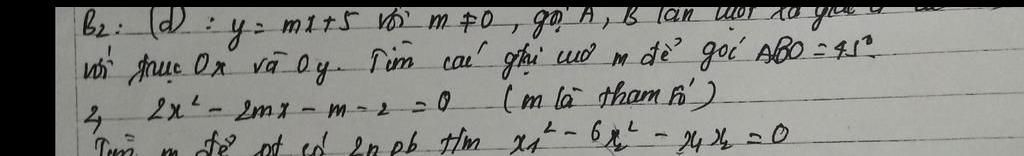 B2: (d) : y = mx+5 với m ≠ 0, gọi A, B lần lượt
với trục Ox và Oy. Tìm các ghị của m để góc ABO = 45°
2, 2x² - 2mx - m - 2 = 0 (m là tham số)
Tìm m để pt có 2n pb t/m x₁² - 6x₂² - x₁x₂ = 0